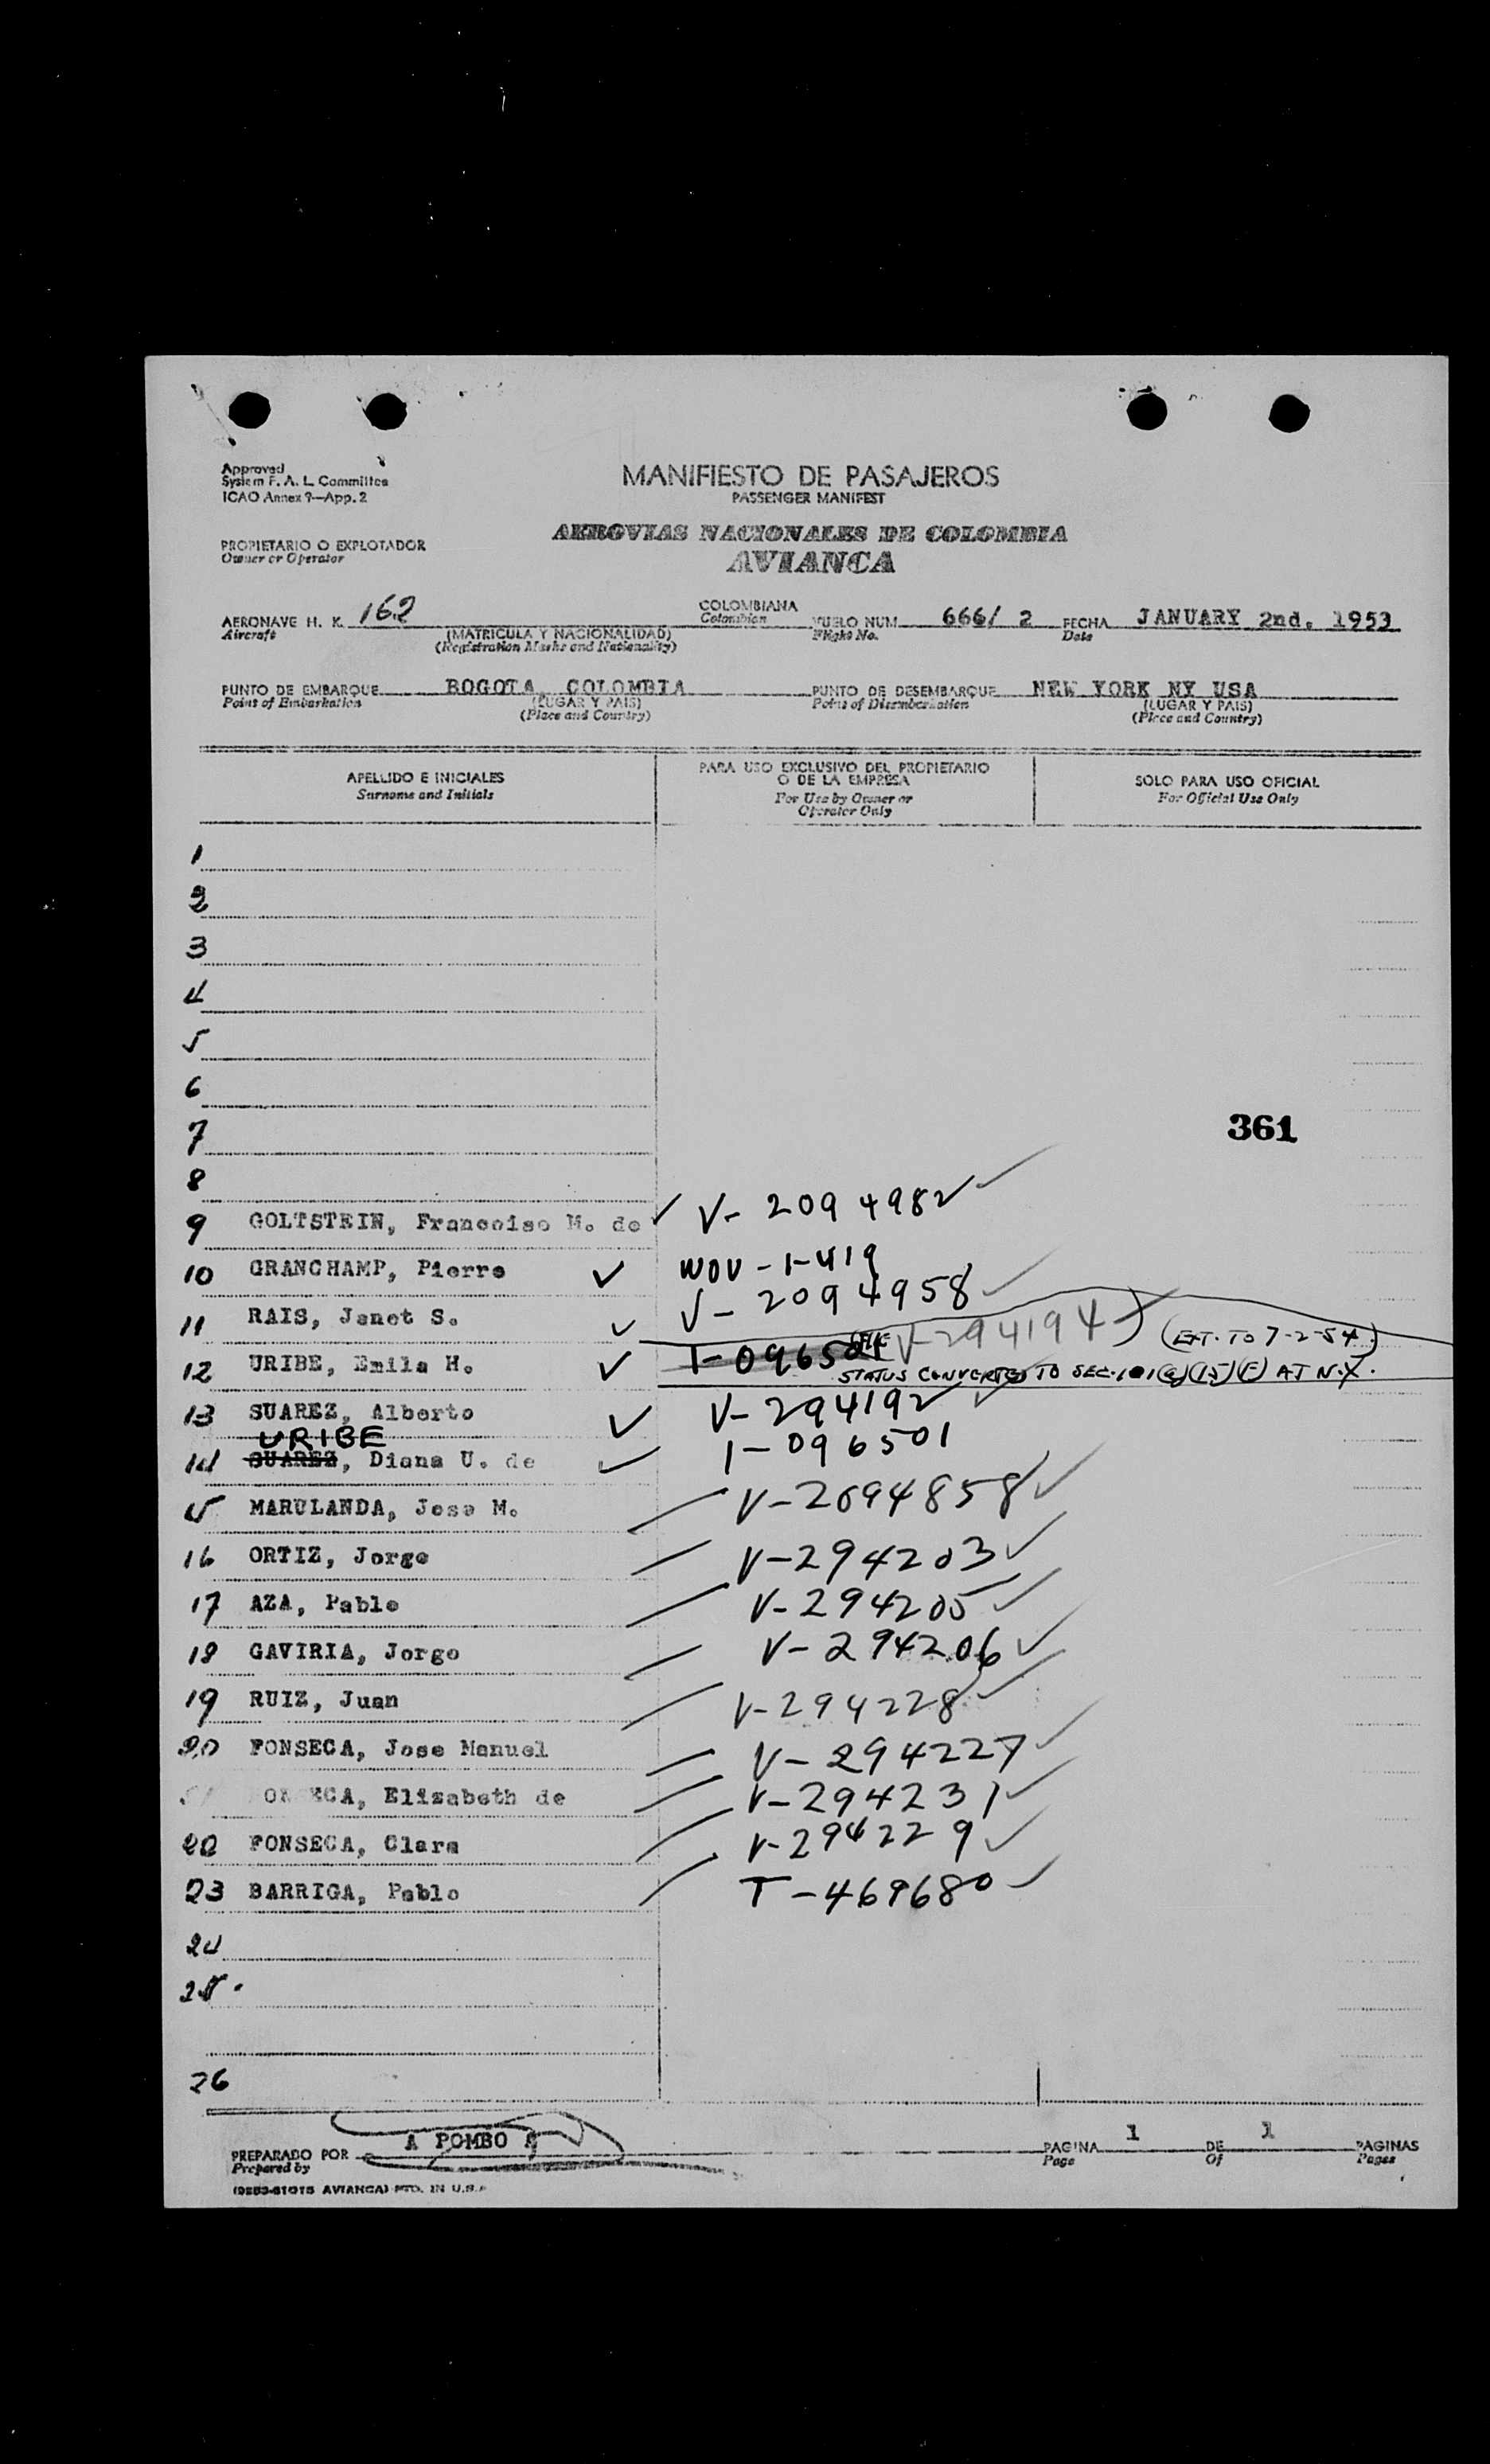 Approved
System F. A. L. Committee
ICAO Annex 9—App. 2
MANIFIESTO DE PASAJEROS
PASSENGER MANIFEST
PROPIETARIO O EXPLOTADOR
Owner or Operator
AEROVIAS NACIONALES DE COLOMBIA
AVIANCA
AERONAVE H. K. 162 COLOMBIANA VUELO NUM. 666/ 2 FECHA JANUARY 2nd. 1953
Aircraft (MATRICULA Y NACIONALIDAD) Colombian Flight No. Date
(Registration Marks and Nationality)
PUNTO DE EMBARQUE BOGOTA, COLOMBIA PUNTO DE DESEMBARQUE NEW YORK NY USA
Point of Embarkation (LUGAR Y PAIS) Point of Disembarkation (LUGAR Y PAIS)
(Place and Country) (Place and Country)
APELLIDO E INICIALES
Surname and Initials
PARA USO EXCLUSIVO DEL PROPIETARIO
O DE LA EMPRESA
For Use by Owner or
Operator Only
SOLO PARA USO OFICIAL
For Official Use Only
1
2
3
4
5
6
7
361
8
9 GOLTSTEIN, Francoise M. de ✓ V-2094982 ✓
10 GRANCHAMP, Pierre ✓ WOV-1-419
11 RAIS, Janet S. ✓ V-2094958 ✓
12 URIBE, Emila H. ✓ T-096501 V-294194 (EXT. TO 7-2-54)
STATUS CONVERTED TO SEC. 101(a)(15)(F) AT N.Y.
13 SUAREZ, Alberto ✓ V-294192 ✓
URIBE
14 SUAREZ, Diana U. de ✓ T-096501
15 MARULANDA, Jose M. V-2694858 ✓
16 ORTIZ, Jorge V-294203 ✓
17 AZA, Pablo V-294205 ✓
18 GAVIRIA, Jorge V-294206 ✓
19 RUIZ, Juan V-294228 ✓
20 FONSECA, Jose Manuel V-294227 ✓
ECA, Elizabeth de V-294231 ✓
22 FONSECA, Clara V-294229 ✓
23 BARRIGA, Pablo T-469680 ✓
24
25.
26
PREPARADO POR A POMBO A PAGINA 1 DE 1 PAGINAS
Prepared by Page Of Pages
AVIANCA) PTD. IN U.S.A.